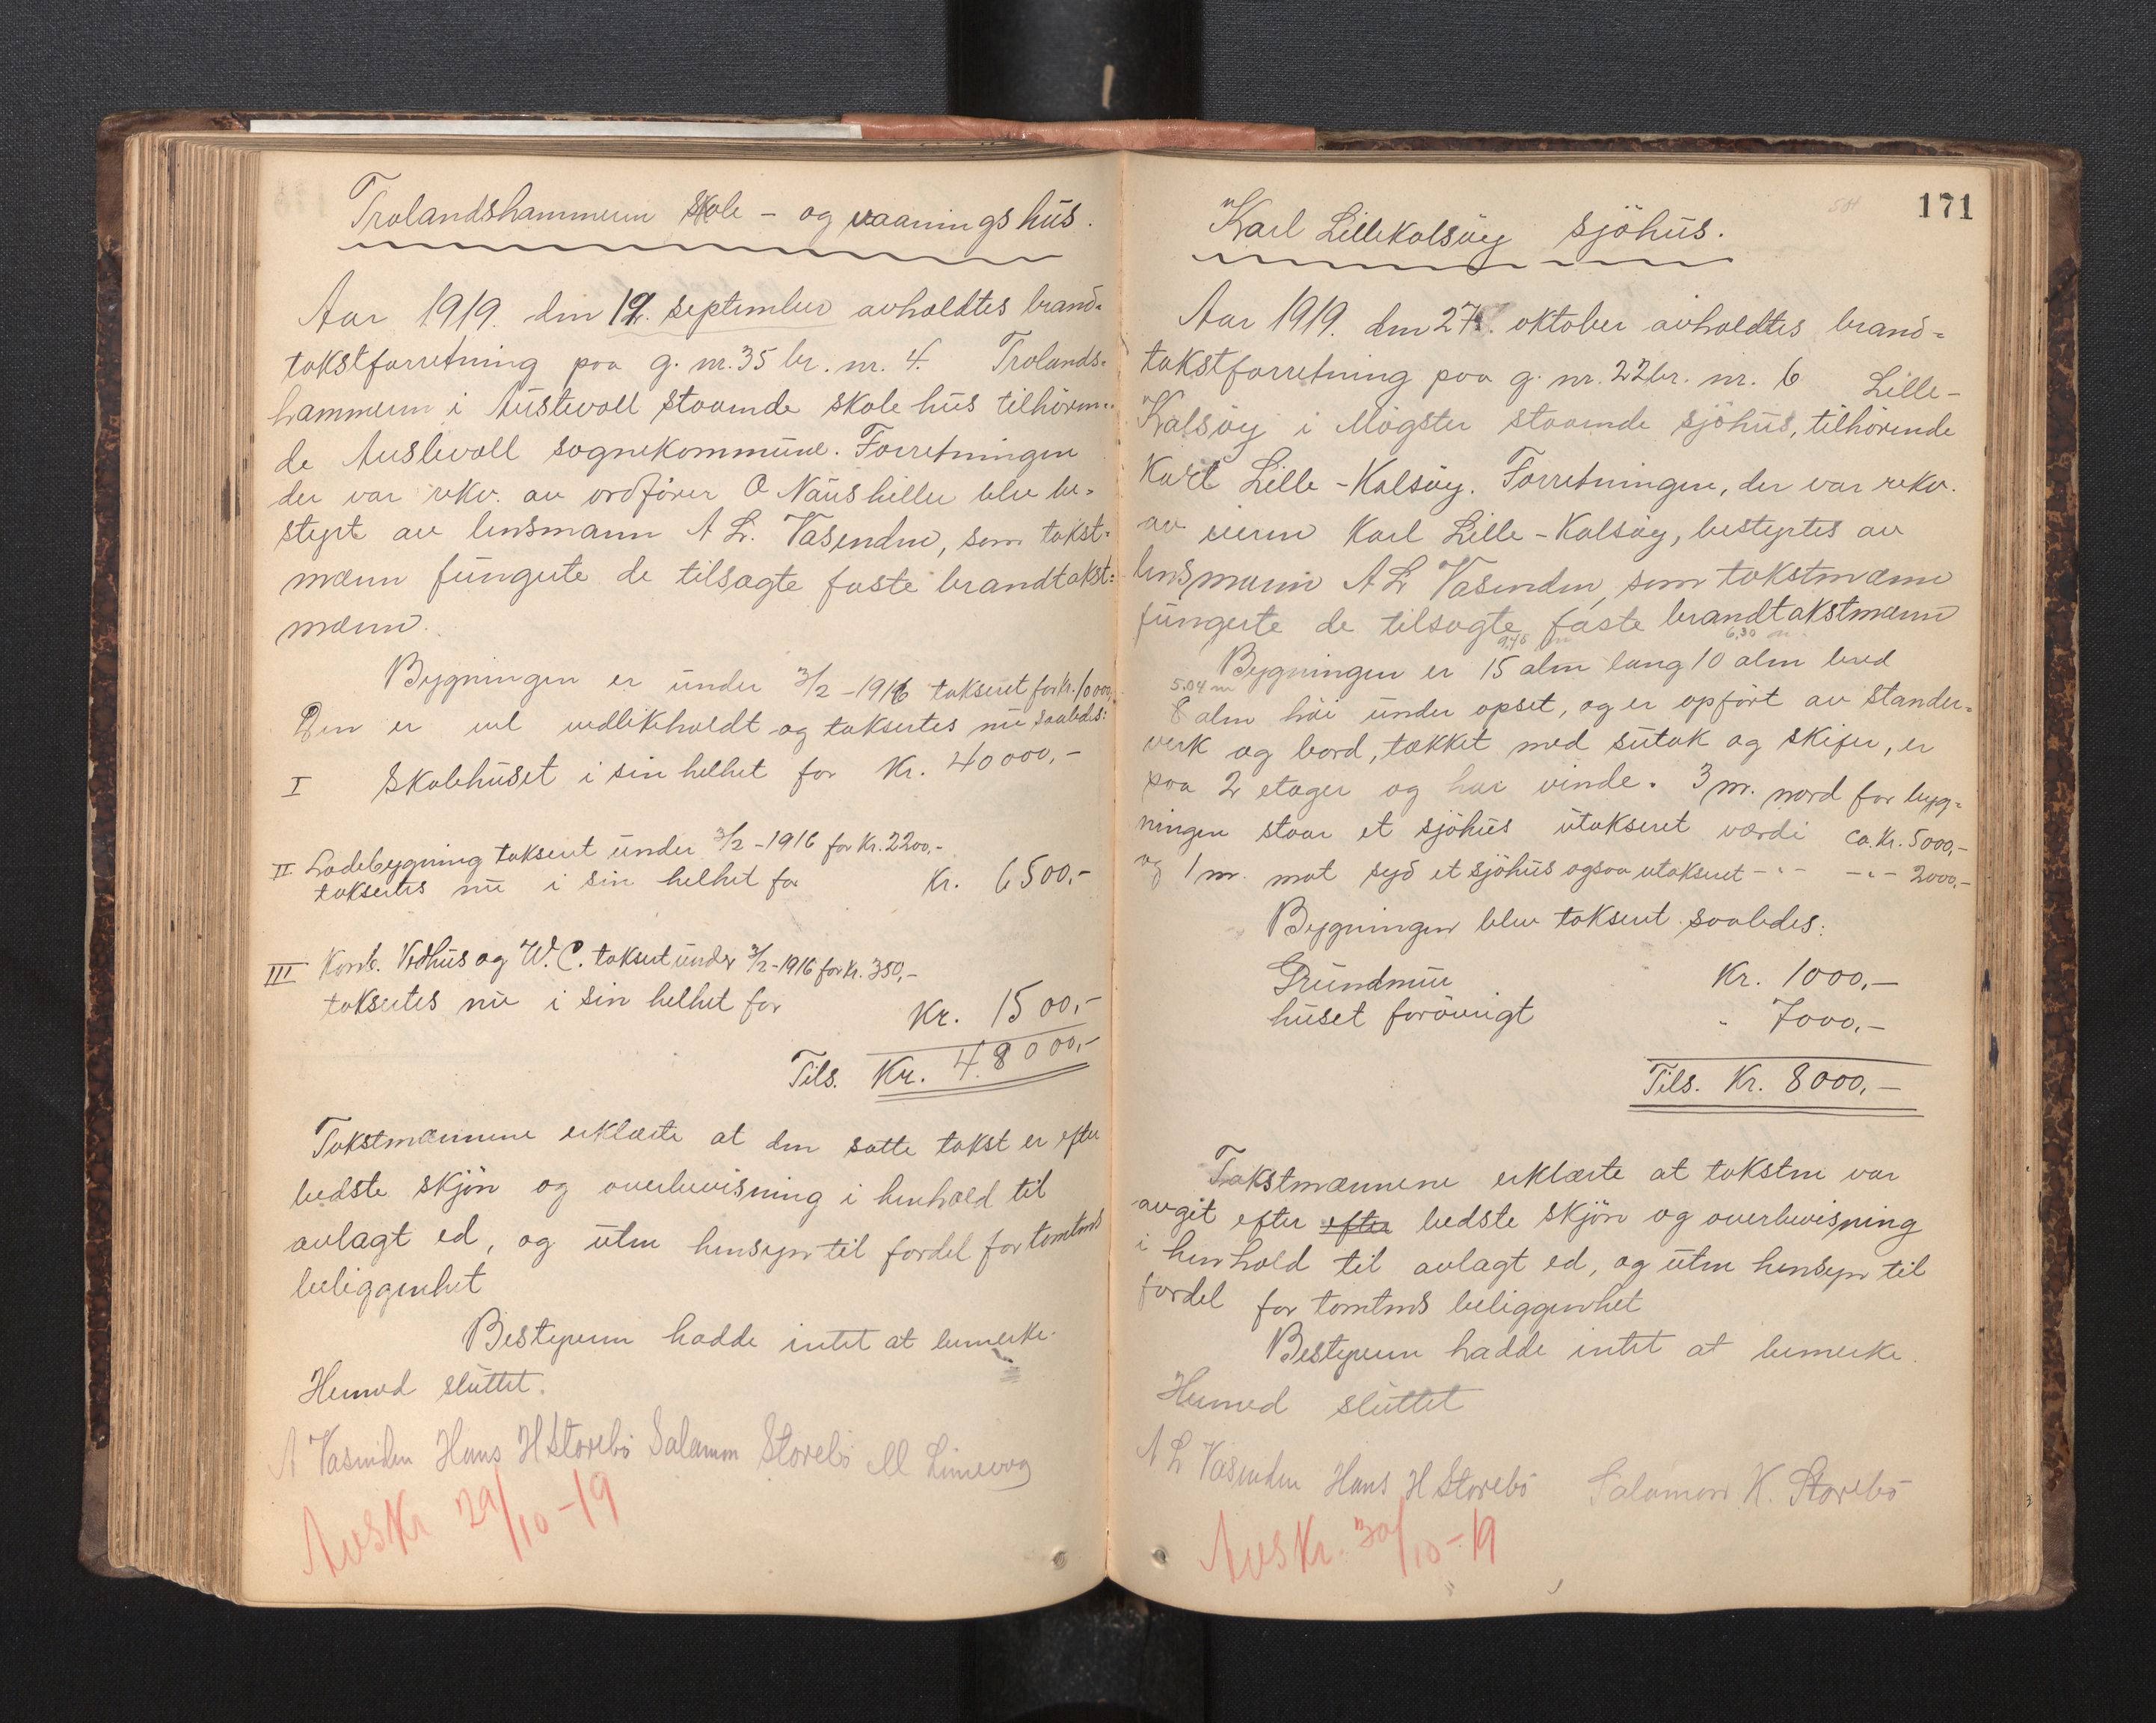 Trolandshammeren skole- og vaaningshus.
Aar 1919. den 19. september avholdtes brand-
takstforretning paa g. nr. 35 br. nr. 4. Trolands-
hammeren i Austevoll staaende skole hus tilhören-
de Austevoll sognekommune. Forretningen
der var rekv. av ordförer O Näushiller blev be-
styrt av lensmann A L. Vasenden, som takst-
mænn fungerte de tilsagte faste brandtakst-
mænn.
Bygningen er under 3/2-1916 taksert for kr. 10000,-
Den er vel vedlikeholdt og taksertes nu saaledes:
I Skolehuset i sin helhet for Kr. 40000,-
II Ladebygning taksert under 3/2-1916 for Kr. 2200,-
taksertes nu i sin helhet for Kr. 6500,-
III Komb. Vedhus og W.C. taksert under 3/2-1916 for Kr. 350,-
taksertes nu i sin helhet for
Kr. 1500,-
Tils. Kr. 48000,-
Takstmænnene erklærte at den satte takst er efter
bedste skjön og overbevisning i henhold til
avlagt ed, og uten hensyn til fordel for tomtens
beliggenhet
Bestyreren hadde intet at bemerke.
Hermed sluttet.
A Vasenden Hans H Storebö Salamon Storebö M Linevog
Avskr 29/10-19
171
Karl Lillekalsöy sjöhus.
Aar 1919. den 27. oktober avholdtes brand-
takstforretning paa g. nr. 22 br. nr. 6 Lille-
Kalsöy i Mögster staaende sjöhus, tilhörende
Karl Lille-Kalsöy. Forretningen, der var rekv.
av eieren Karl Lille-Kalsöy, bestyrtes av
lensmann A L Vasenden, som takstmænn
fungerte de tilsagte faste brandtakstmænn
9,45 m 6,30 m
Bygningen er 15 alen lang 10 alen bred
5.04 m
8 alen höi under opset, og er opfört av stender-
verk og bord, tækket med sutak og skifer, er
paa 2 etager og har vinde. 3 m. nord for byg-
ningen staar et sjöhus utaksert værdi ca. Kr. 5000,-
og 1 m. mot syd et sjöhus ogsaa utaksert -"- -"- 2000,-
Bygningen blev taksert saaledes:
Grundmur Kr. 1000,-
huset forövrigt " 7000,-
Tils. Kr. 8000,-
Takstmænnene erklærte at taksten var
avgit efter efter bedste skjön og overbevisning
i henhold til avlagt ed, og uten hensyn til
fordel for tomtens beliggenhet
Bestyreren hadde intet at bemerke.
Hermed sluttet
A L Vasenden Hans H Storebö Salamon K. Storebö
Avskr. 30/10-19